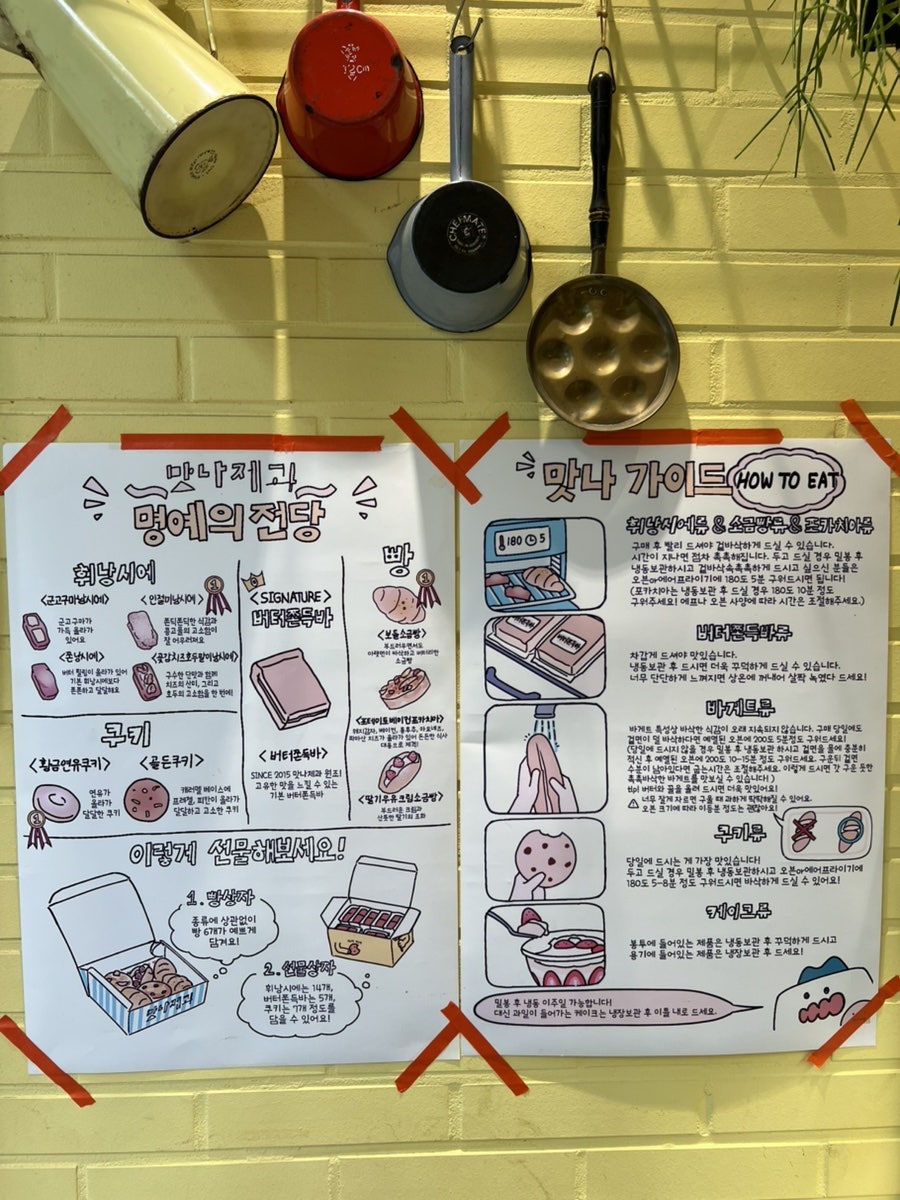 12cm
CHEFMATE
맛나제과
명예의 전당
휘낭시에
<군고구마낭시에>
군고구마가
가득 올라가
있어요
<인절미낭시에>
쫀득쫀득한 식감과
콩고물의 고소함이
잘 어우러져요
<쫀낭시에>
버터 필링이 올라가 있어
기본 휘낭시에보다
쫀쫀하고 달달해요
<곶감치즈호두말이낭시에>
구수한 단맛과 함께
치즈의 산미, 그리고
호두의 고소함을 한 번에!
쿠키
<황금연유쿠키>
연유가
올라가
달달한 쿠키
<골든쿠키>
캐러멜 베이스에
프레첼, 피칸이 올라가
달달하고 고소한 쿠키
<SIGNATURE>
버터쫀득바
<버터쫀득바>
SINCE 2015 맛나제과 원조!
고유한 맛을 느낄 수 있는
기본 버터쫀득바
빵
<보들소금빵>
부드러우면서도
아랫면이 바삭하고 버터리한
소금빵
<포테이토베이컨포카치아>
돼지감자, 베이컨, 통후추, 마요네즈,
파마산 치즈가 올라가 있어 든든한 식사
대용으로 제격!
<딸기우유크림소금빵>
부드러운 크림과
산뜻한 딸기의 조화
이렇게 선물해보세요!
1. 빵상자
종류에 상관없이
빵 6개가 예쁘게
담겨요!
맛나제과
2. 선물상자
휘낭시에는 14개,
버터쫀득바는 5개,
쿠키는 7개 정도를
담을 수 있어요!
맛나 가이드 HOW TO EAT
180 5
휘낭시에류 & 소금빵류 & 포카치아류
구매 후 빨리 드셔야 겉바삭하게 드실 수 있습니다.
시간이 지나면 점차 촉촉해집니다. 두고 드실 경우 밀봉 후
냉동보관하시고 겉바삭속촉촉하게 드시고 싶으신 분들은
오븐or에어프라이기에 180도 5분 구워드시면 됩니다!
(포카치아는 냉동보관 후 드실 경우 180도 10분 정도
구워주세요! 에프나 오븐 사양에 따라 시간은 조절해주세요.)
버터쫀득바류
차갑게 드셔야 맛있습니다.
냉동보관 후 드시면 더욱 꾸덕하게 드실 수 있습니다.
너무 단단하게 느껴지면 상온에 꺼내어 살짝 녹였다 드세요!
바게트류
바게트 특성상 바삭한 식감이 오래 지속되지 않습니다. 구매 당일에도
겉면이 덜 바삭하다면 예열된 오븐에 200도 5분정도 구워드세요!
(당일에 드시지 않을 경우 밀봉 후 냉동보관 하시고 겉면을 물에 충분히
적신 후 예열된 오븐에 200도 10~15분 정도 구워드세요. 구운뒤 겉면
수분이 남아있다면 굽는시간은 조절해주세요. 이렇게 드시면 갓 구운 듯한
촉촉바삭한 바게트를 맛보실 수 있습니다!)
tip! 버터와 꿀을 올려 드시면 더욱 맛있어요!
⚠ 너무 잘게 자르면 구울 때 과하게 딱딱해질 수 있어요.
오븐 크기에 따라 이등분 정도는 괜찮아요!
쿠키류
당일에 드시는 게 가장 맛있습니다!
두고 드실 경우 밀봉 후 냉동보관하시고 오븐or에어프라이기에
180도 5~8분 정도 구워드시면 바삭하게 드실 수 있어요!
케이크류
봉투에 들어있는 제품은 냉동보관 후 꾸덕하게 드시고
용기에 들어있는 제품은 냉장보관 후 드세요!
밀봉 후 냉동 이주일 가능합니다!
대신 과일이 들어가는 케이크는 냉장보관 후 이틀 내로 드세요.